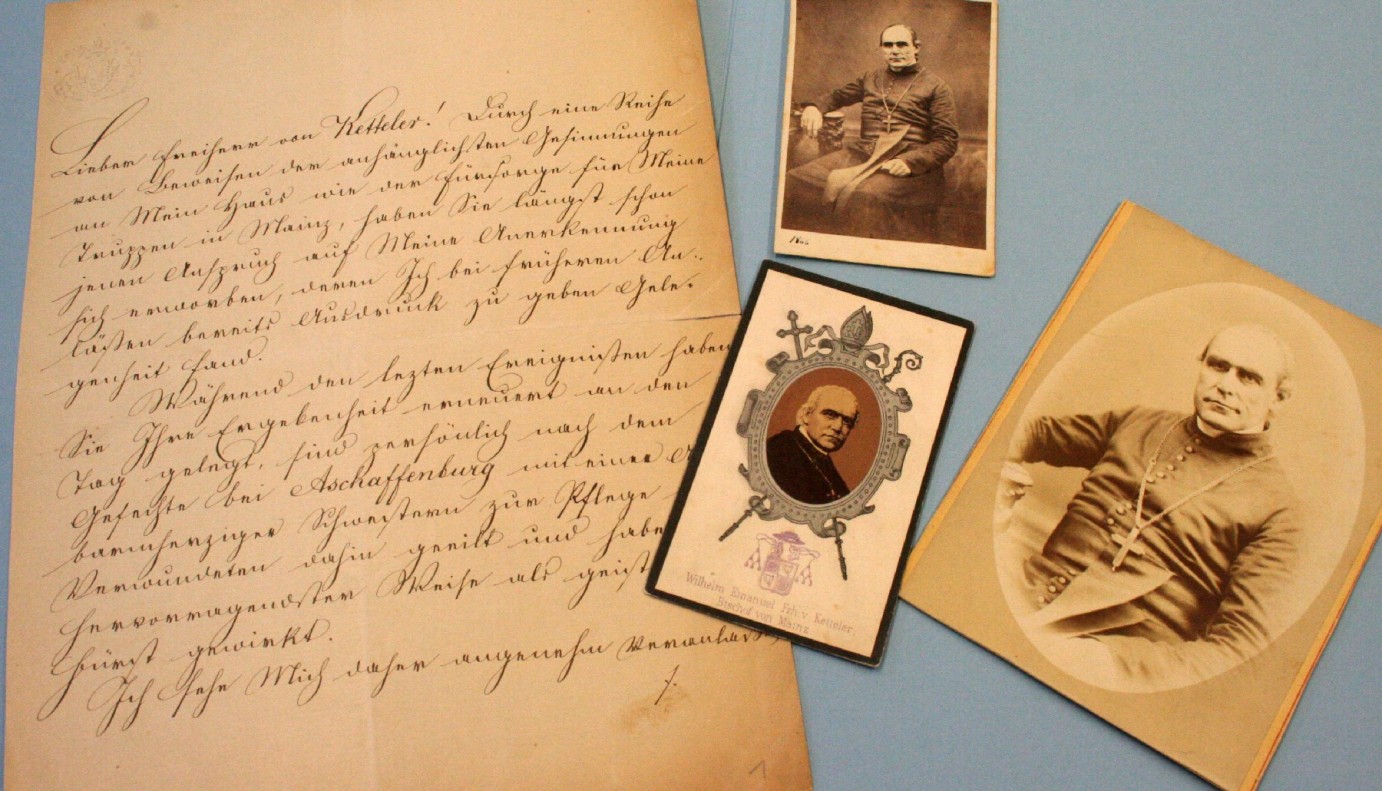 Lieber Freiherr von Ketteler! Durch eine Reihe
von Beweisen der anhänglichsten Gesinnungen
an Mein Haus wie der Fürsorge für Meine
Truppen in Mainz, haben Sie längst schon
jenen Anspruch auf Meine Anerkennung
sich erworben, deren Ich bei früheren An-
läßen bereits Ausdruck zu geben Gele-
genheit fand.
Während den lezten Ereignißen haben
Sie Ihre Ergebenheit erneuert an den
Tag gelegt, sind persönlich nach dem
Gefechte bei Aschaffenburg mit einer
barmherziger Schwestern zur Pflege
Verwundeten dahin geeilt und habe
hervorragendster Weise als geist
fürst gewirkt.
Ich sehe Mich daher angenehm veranlaßt,
Wilhelm Emanuel Frh. v. Ketteler,
Bischof von Mainz
1